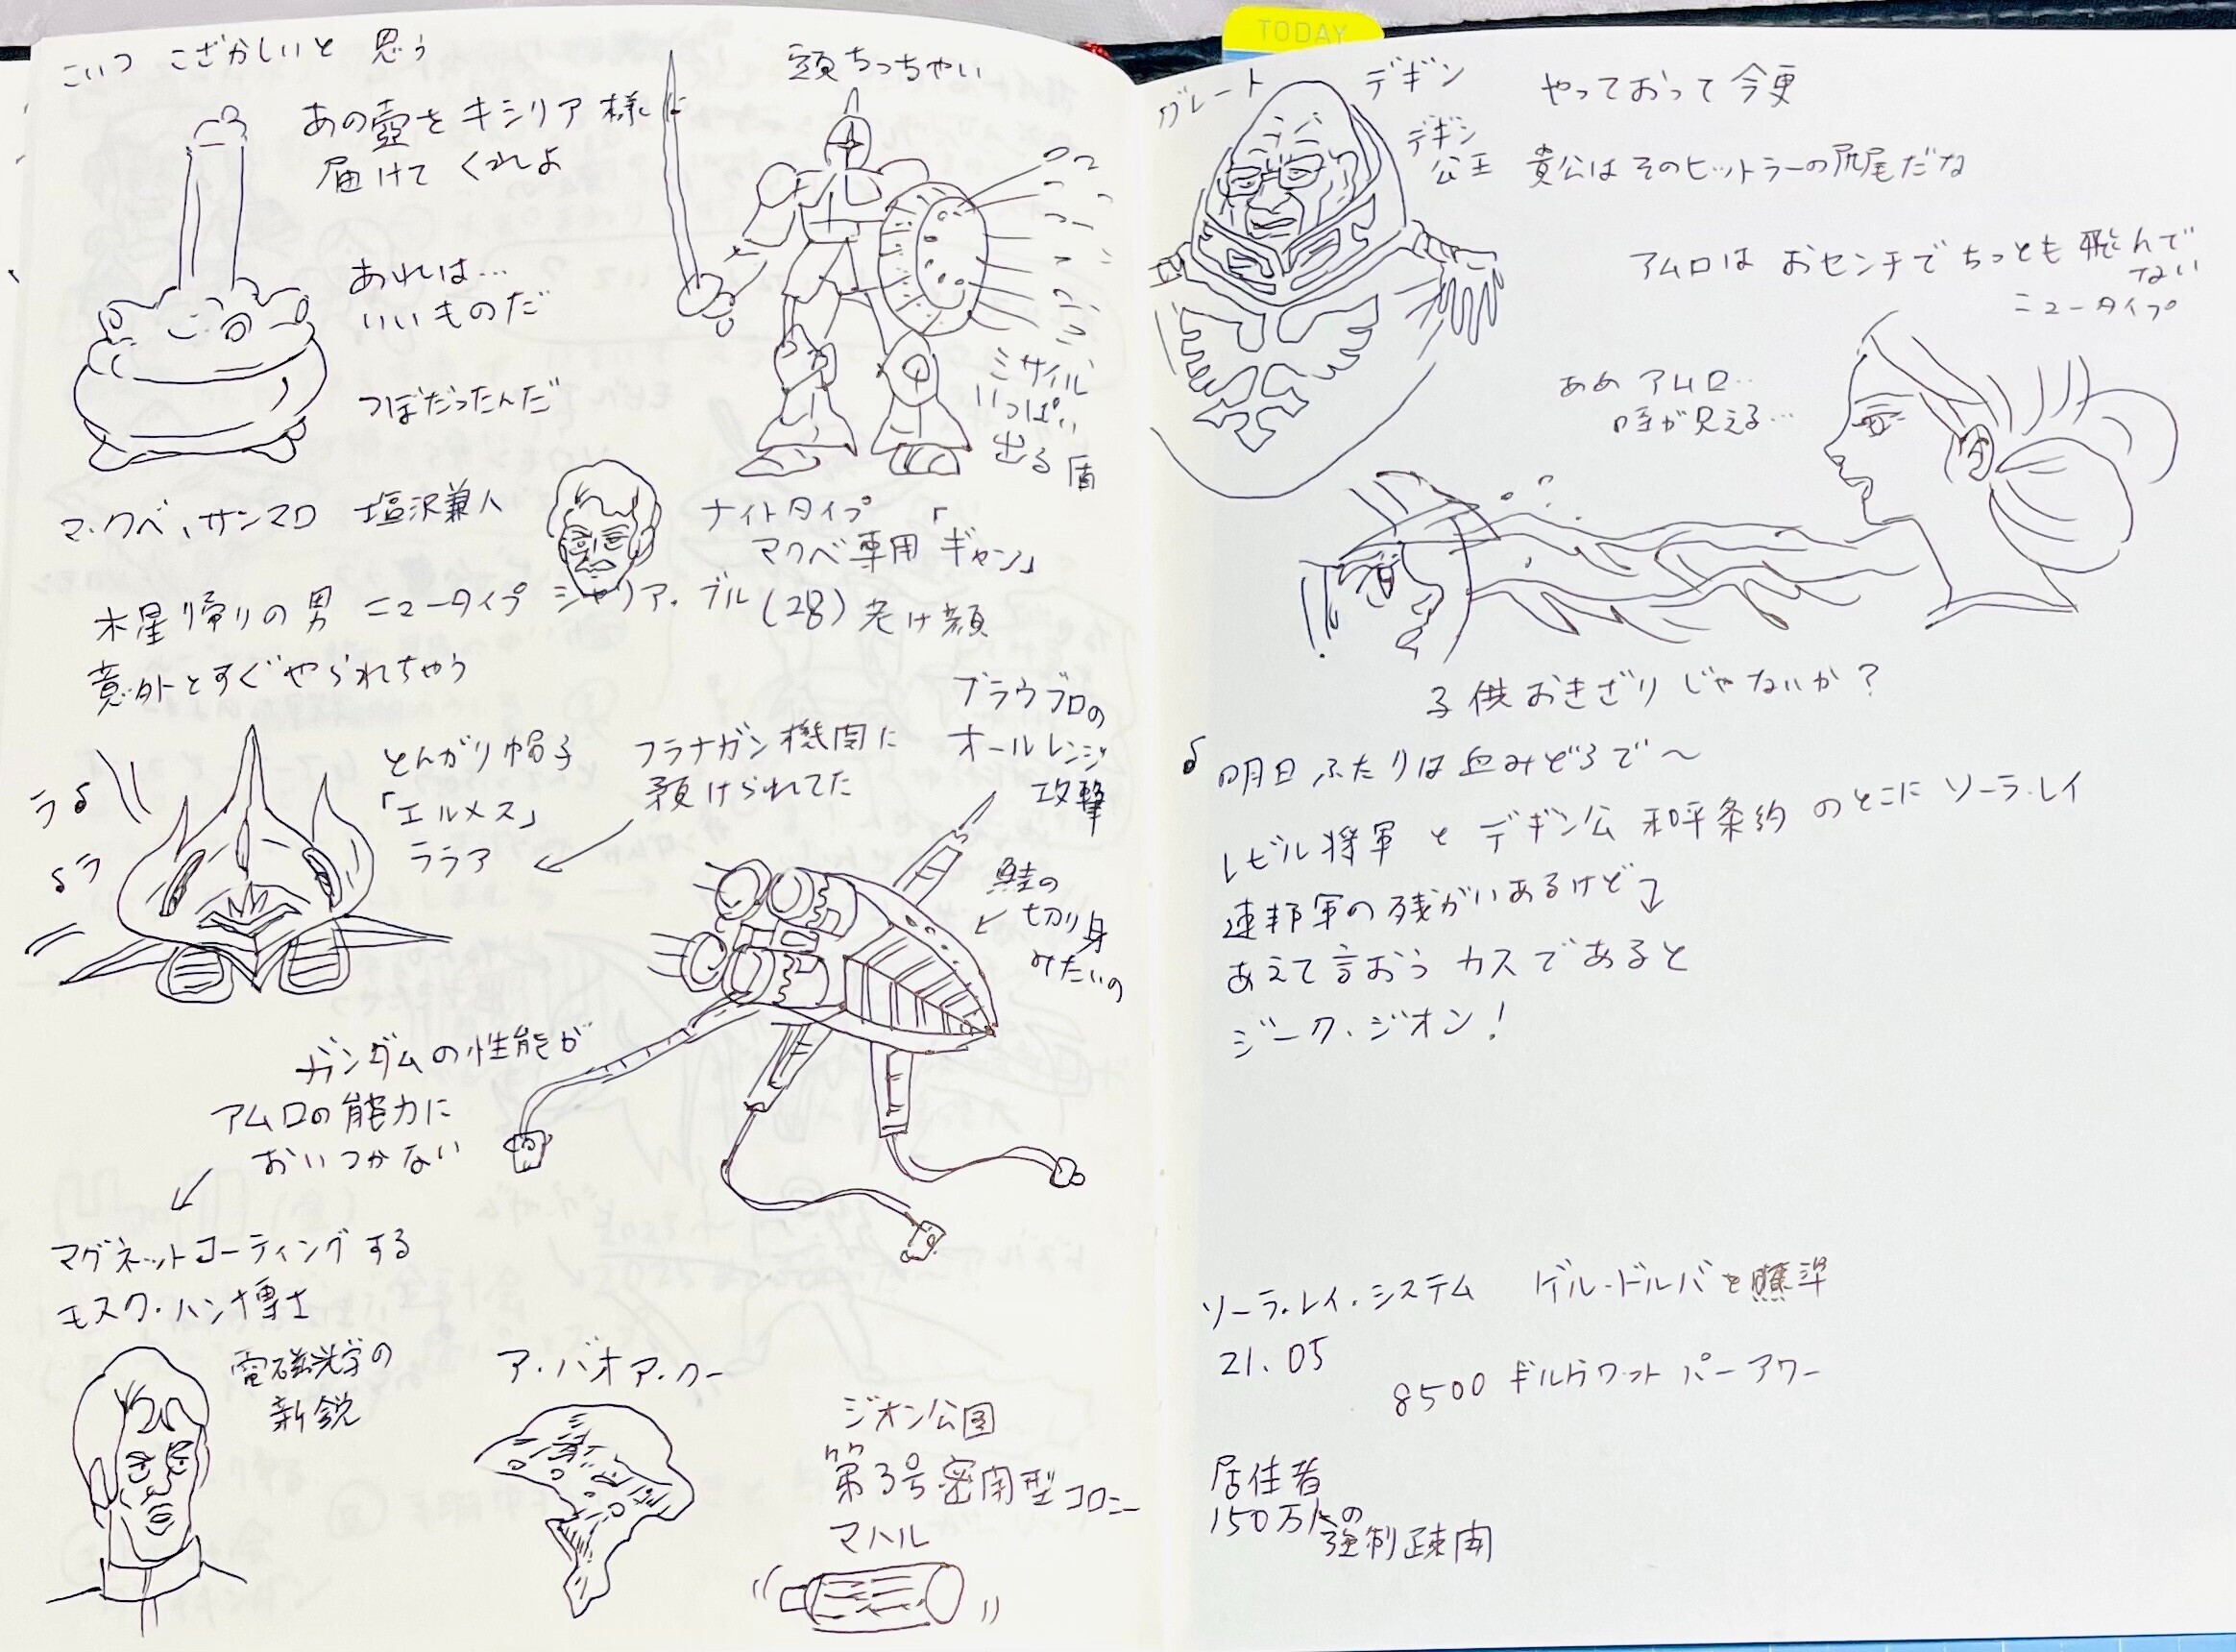 TODAY
こいつ こざかしいと 思う
あの壺をキシリア様に
届けて くれよ
あれは…
いいものだ
つぼだったんだ
頭ちっちゃい
ミサイル
いっぱい
出る盾
マ・クベ、サンマロ 塩沢兼人
ナイトタイプ
マクベ専用「ギャン」
木星帰りの男 ニュータイプ シャリア・ブル(28)老け顔
意外とすぐやられちゃう
ラ♪
♪ラ
とんがり帽子
「エルメス」
ララア
フラナガン機関に
預けられてた
ブラウブロの
オールレンジ
攻撃
鮭の
切り身
みたいの
ガンダムの性能が
アムロの能力に
おいつかない
マグネットコーティングする
モスク・ハン博士
電磁光学の
新鋭
ア・バオア・クー
ジオン公国
第3号密閉型コロニー
マハル
グレート
デギン
デギン
公王
やっておって今更
貴公はそのヒットラーの尻尾だな
アムロは おセンチで ちっとも 飛んで
ない
ニュータイプ
ああ アムロ…
時が見える…
子供おきざりじゃないか?
♪明日ふたりは血みどろで〜
レビル将軍 と デギン公 和平条約 のとこに ソーラ・レイ
連邦軍の残がいあるけど
あえて言おう カスであると
ジーク・ジオン!
ソーラ・レイ・システム ゲル・ドルバを照準
21.05
8500 ギルドワット パーアワー
居住者
150万人の
強制疎開